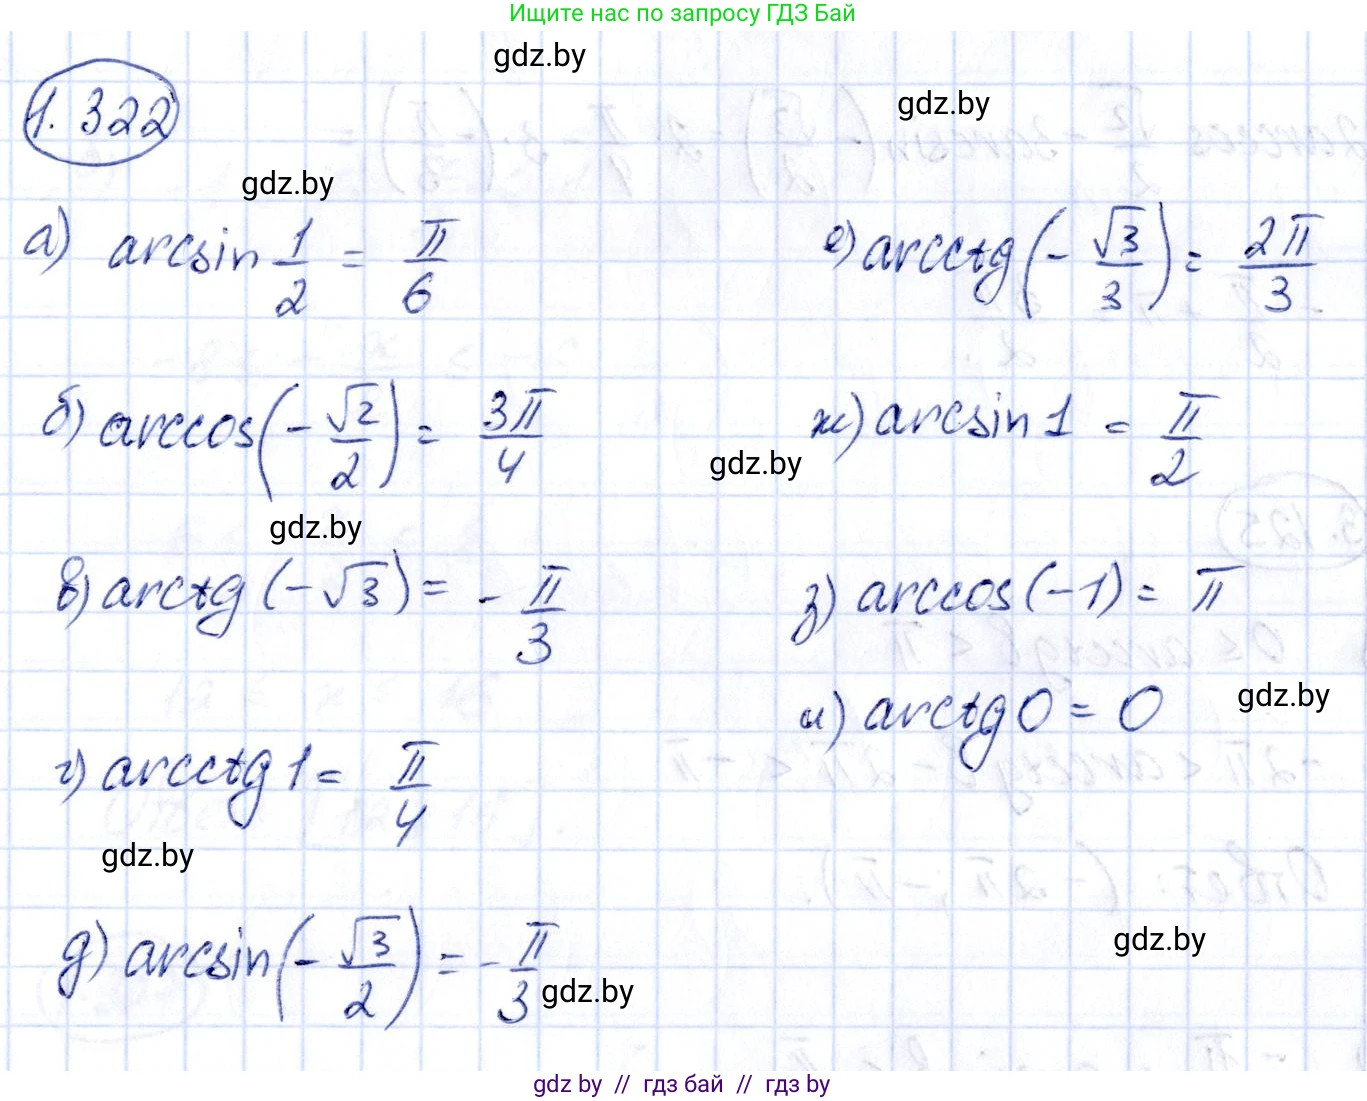 Ищите нас по запросу ГДЗ Бай
gdz.by
gdz.by
1.322
gdz.by
а) arcsin 1/2 = π/6
б) arccos(-√2/2) = 3π/4
gdz.by
в) arctg(-√3) = -π/3
г) arcctg 1 = π/4
gdz.by
д) arcsin(-√3/2) = -π/3
gdz.by
е) arcctg(-√3/3) = 2π/3
ж) arcsin 1 = π/2
gdz.by
з) arccos(-1) = π
и) arctg 0 = 0
gdz.by
gdz.by
gdz by // гдз бай // гдз by